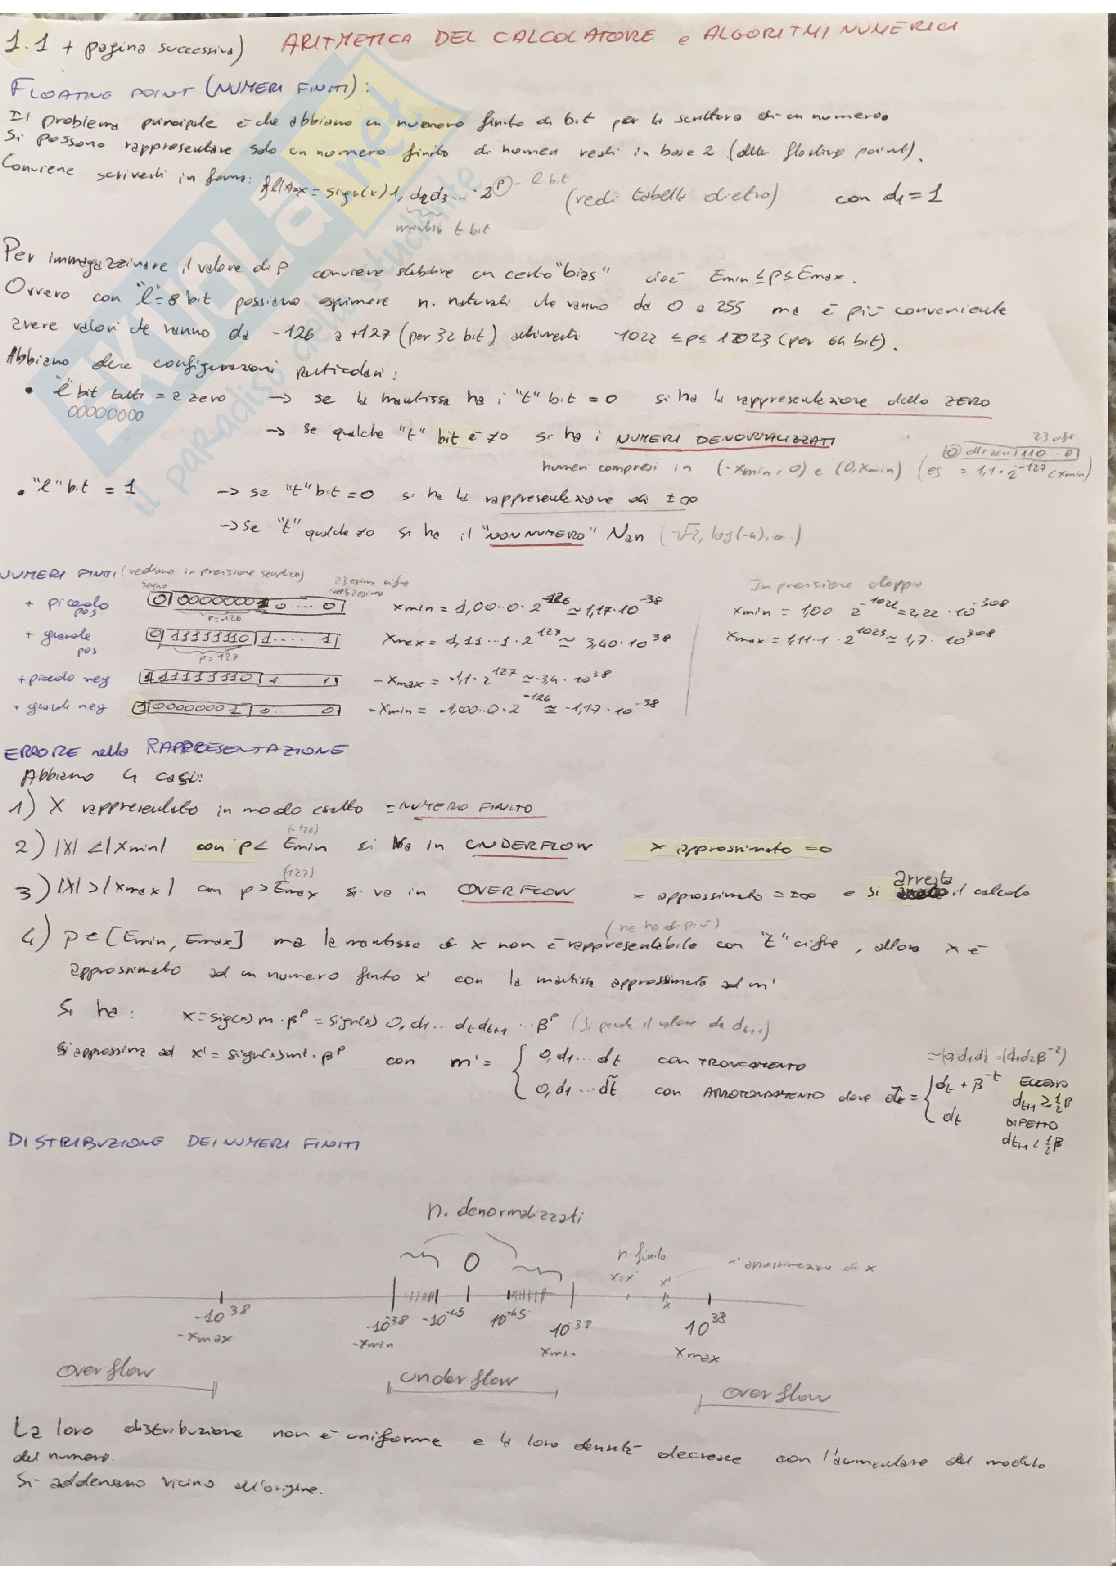 1.1 + pagina successiva) ARITMETICA DEL CALCOLATORE e ALGORITMI NUMERICI
FLOATING POINT (NUMERI FINITI):
Il problema principale è che abbiamo un numero finito di bit per la scrittura di un numero.
Si possono rappresentare solo un numero finito di numeri reali in base 2 (detti floating point).
Conviene scriverli in forma: x = sign(x) 1, d2d3... · 2^p - l bit (vedi tabella dietro) con d1 = 1
mantissa t bit
Per immagazzinare il valore di p conviene stabilire un certo "bias" cioè Emin ≤ p ≤ Emax.
Ovvero con "l"=8 bit possiamo esprimere n. naturali che vanno da 0 a 255 ma è più conveniente
avere valori che vanno da -126 a +127 (per 32 bit) altrimenti -1022 ≤ p ≤ 1023 (per 64 bit).
Abbiamo due configurazioni particolari:
• "l" bit tutti = a zero → se la mantissa ha i "t" bit = 0 si ha la rappresentazione dello ZERO
00000000
→ se qualche "t" bit è ≠0 si ha i NUMERI DENORMALIZZATI
23 cifre
numeri compresi in (-xmin, 0) e (0, xmin) (es = 1,1 · 2^-127 < xmin)
• "l" bit = 1 → se "t" bit = 0 si ha la rappresentazione di ±∞
→ se "t" qualche ≠0 si ha il "NON NUMERO" Nan (√-2, log(-4), ...)
NUMERI FINITI (vediamo in precisione semplice) In precisione doppia
segno
+ piccolo pos 0 00000001 0 ... 0 xmin = 1,00··0 · 2^-126 ≃ 1,17 · 10^-38 xmin = 1,00 2^-1022 ≃ 2,22 · 10^-308
p=-126
+ grande pos 0 11111110 1 .... 1 xmax = 1,11···1 · 2^127 ≃ 3,40 · 10^38 xmax = 1,11··1 · 2^1023 ≃ 1,7 · 10^308
p=127
+ piccolo neg 1 11111110 1 1 -xmax = -1,1 · 2^127 ≃ -3,4 · 10^38
+ grandi neg 1 00000001 0... 0 -xmin = -1,00··0 · 2^-126 ≃ -1,17 · 10^-38
ERRORE nella RAPPRESENTAZIONE
Abbiamo 4 casi:
1) X rappresentato in modo esatto = NUMERO FINITO
2) |X| < |Xmin| con p < Emin (-126) si va in UNDERFLOW x approssimato = 0
3) |X| > |Xmax| con p > Emax (127) si va in OVERFLOW - approssimato = ±∞ e si arresta il calcolo
(ne ha di più)
4) p ∈ [Emin, Emax] ma la mantissa di x non è rappresentabile con "t" cifre, allora x è
approssimato ad un numero finito x' con la mantissa approssimata ad m'
Si ha: x = sign(x) m · β^p = sign(x) 0, d1... dt dt+1 ... β^p (si perde il valore da dt+1)
Si approssima ad x' = sign(x) m' · β^p con m' = { 0, d1 ... dt con TRONCAMENTO
0, d1 ... d̃t con ARROTONDAMENTO dove d̃t = { dt + β^-t ECCESSO dt+1 ≥ ½β
dt DIFETTO dt+1 < ½β
DISTRIBUZIONE DEI NUMERI FINITI
n. denormalizzati
0 n. finito x=x' x' approssimazione di x
-10^38 -10^-38 -10^-45 10^-45 10^-38 10^38
-xmax -xmin xmin xmax
overflow underflow overflow
La loro distribuzione non è uniforme e la loro densità decresce con l'aumentare del modulo
del numero.
Si addensano vicino all'origine.